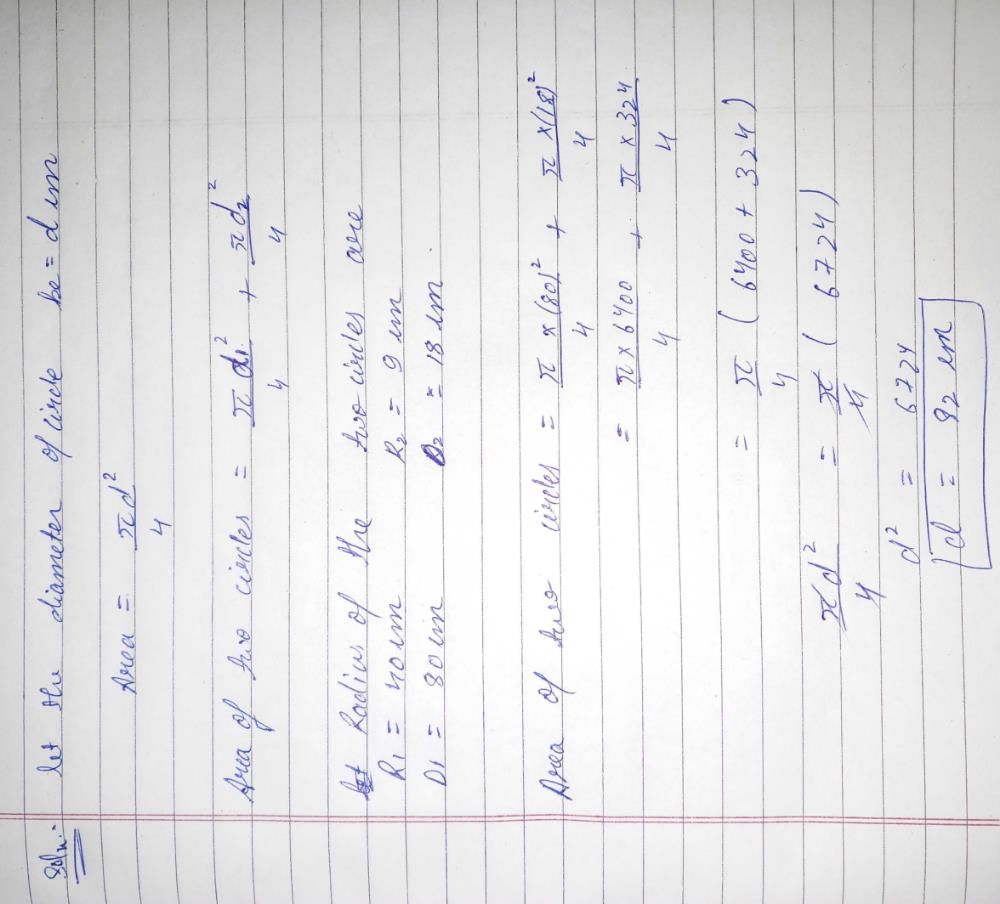 Soln:- let the diameter of circle be = d cm
Area = πd²/4
Area of two circles = πd₁²/4 + πd₂²/4
Radius of the two circles are
R₁ = 40 cm R₂ = 9 cm
D₁ = 80 cm D₂ = 18 cm
Area of two circles = π×(80)²/4 + π×(18)²/4
= π×6400/4 + π×324/4
= π/4 (6400 + 324)
πd²/4 = π/4 (6724)
d² = 6724
d = 82 cm